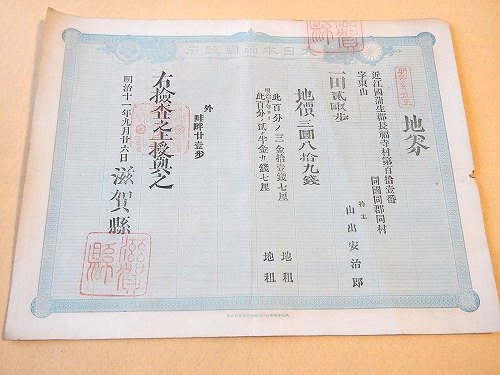 大日本帝國政府
地券
近江國蒲生郡長福寺村第百拾壹番
字東山
同國同郡同村
持主 山出安治郎
一田貳畝歩
外 畦畔廿壹歩
地價三圓八十九錢
此百分ノ三金拾壹錢七厘 地租
明治十年ヨリ
此百分ノ貳ヶ半金九錢七厘 地租
右検査之上授與之
明治十一年九月廿六日
滋賀縣